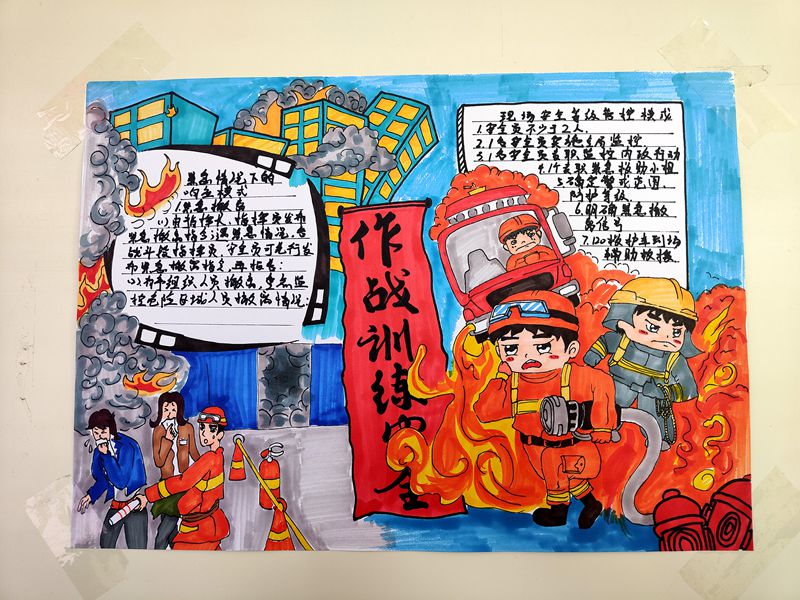 紧急情况下的
响应模式
1.紧急撤离
(1)由指挥人、指挥员发布
紧急撤离指令;遇紧急情况,各
战斗段指挥员、安全员可先行发
布紧急撤离指令,再报告;
(2)有序组织人员撤离,重点监
控危险区域人员撤离情况;
作战训练安全
现场安全等级管控模式
1.安全员不少于2人.
2.1名安全员实施全局监控
3.1名安全员专职监控内攻行动
4.1个专职紧急救助小组
5.确定警戒范围、
防护等级
6.明确紧急撤
离信号
7.120救护车到场
辅助救援.